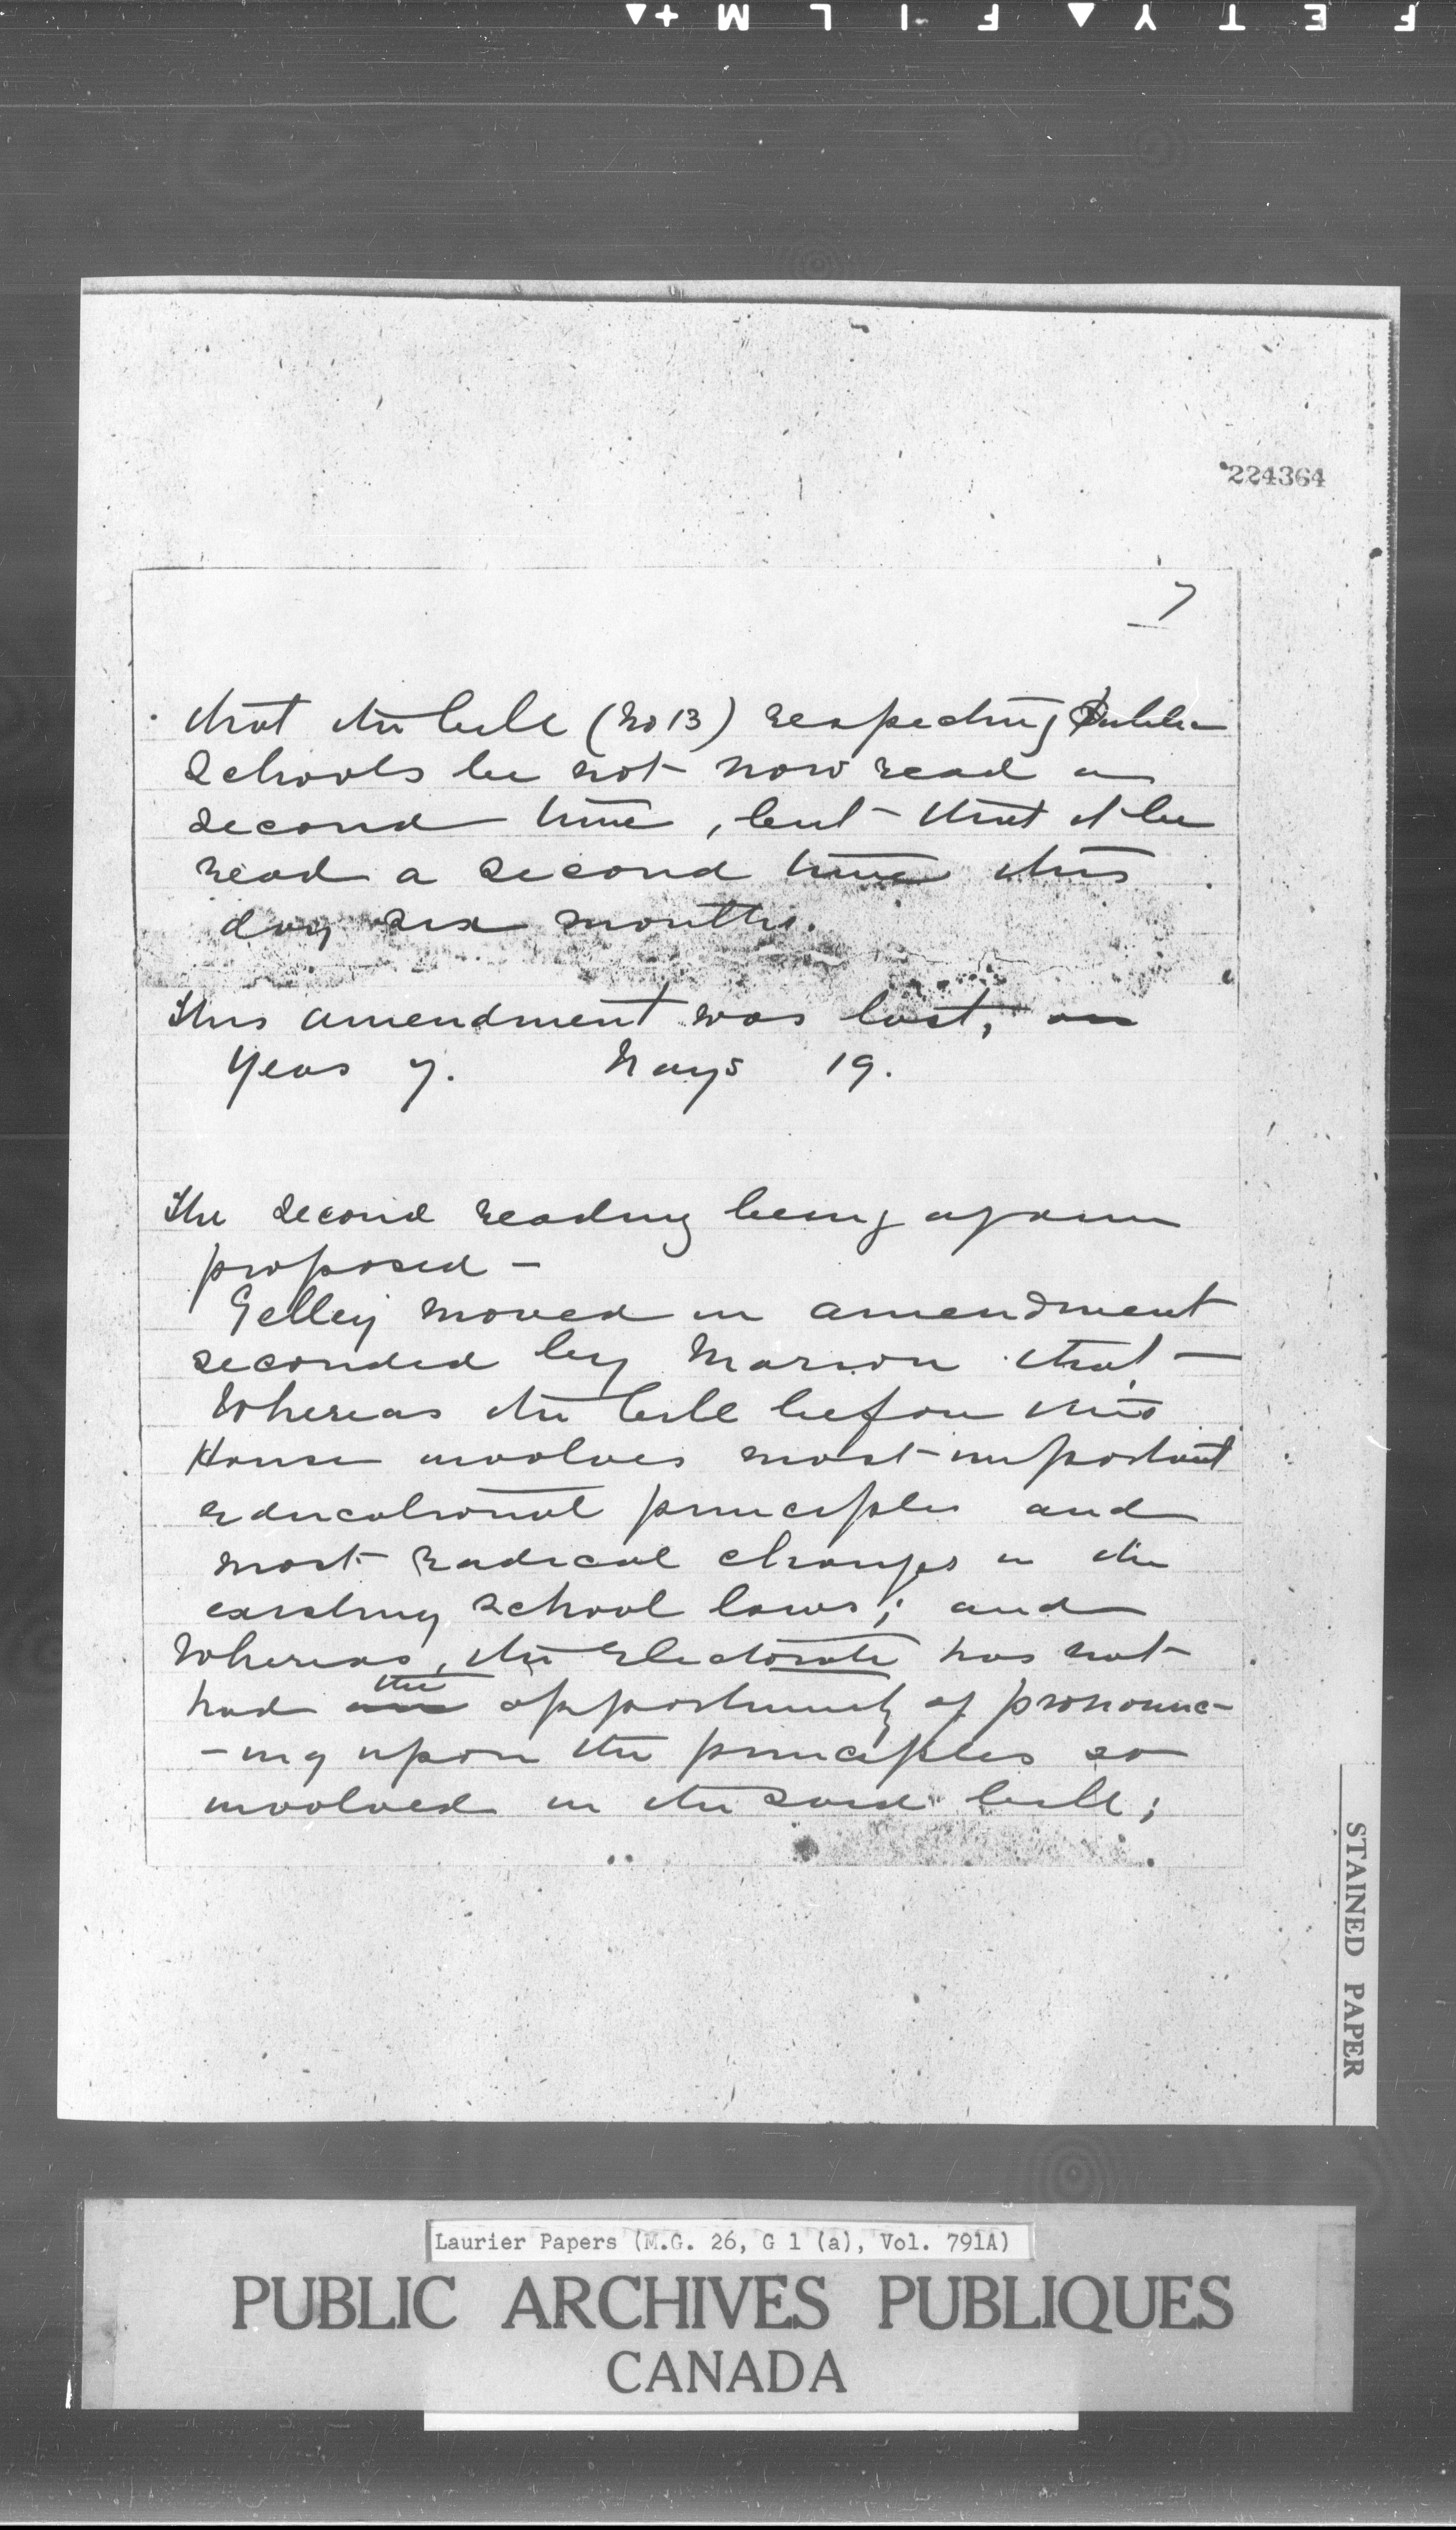 224364
7
that the bill (No 13) respecting Public
Schools be not now read a
second time, but that it be
read a second time this
day six months.
This amendment was lost, on
Yeas 7. Nays 19.
The second reading being again
proposed –
Gelley moved in amendment
seconded by Marion that –
Whereas the bill before this
House involves most important
educational principles and
most radical changes in the
existing school laws; and
Whereas, the Electorate has not
the
had an opportunity of pronounc-
-ing upon the principles so
involved in the said bill;
STAINED PAPER
Laurier Papers (M.G. 26, G 1 (a), Vol. 791A)
PUBLIC ARCHIVES PUBLIQUES
CANADA